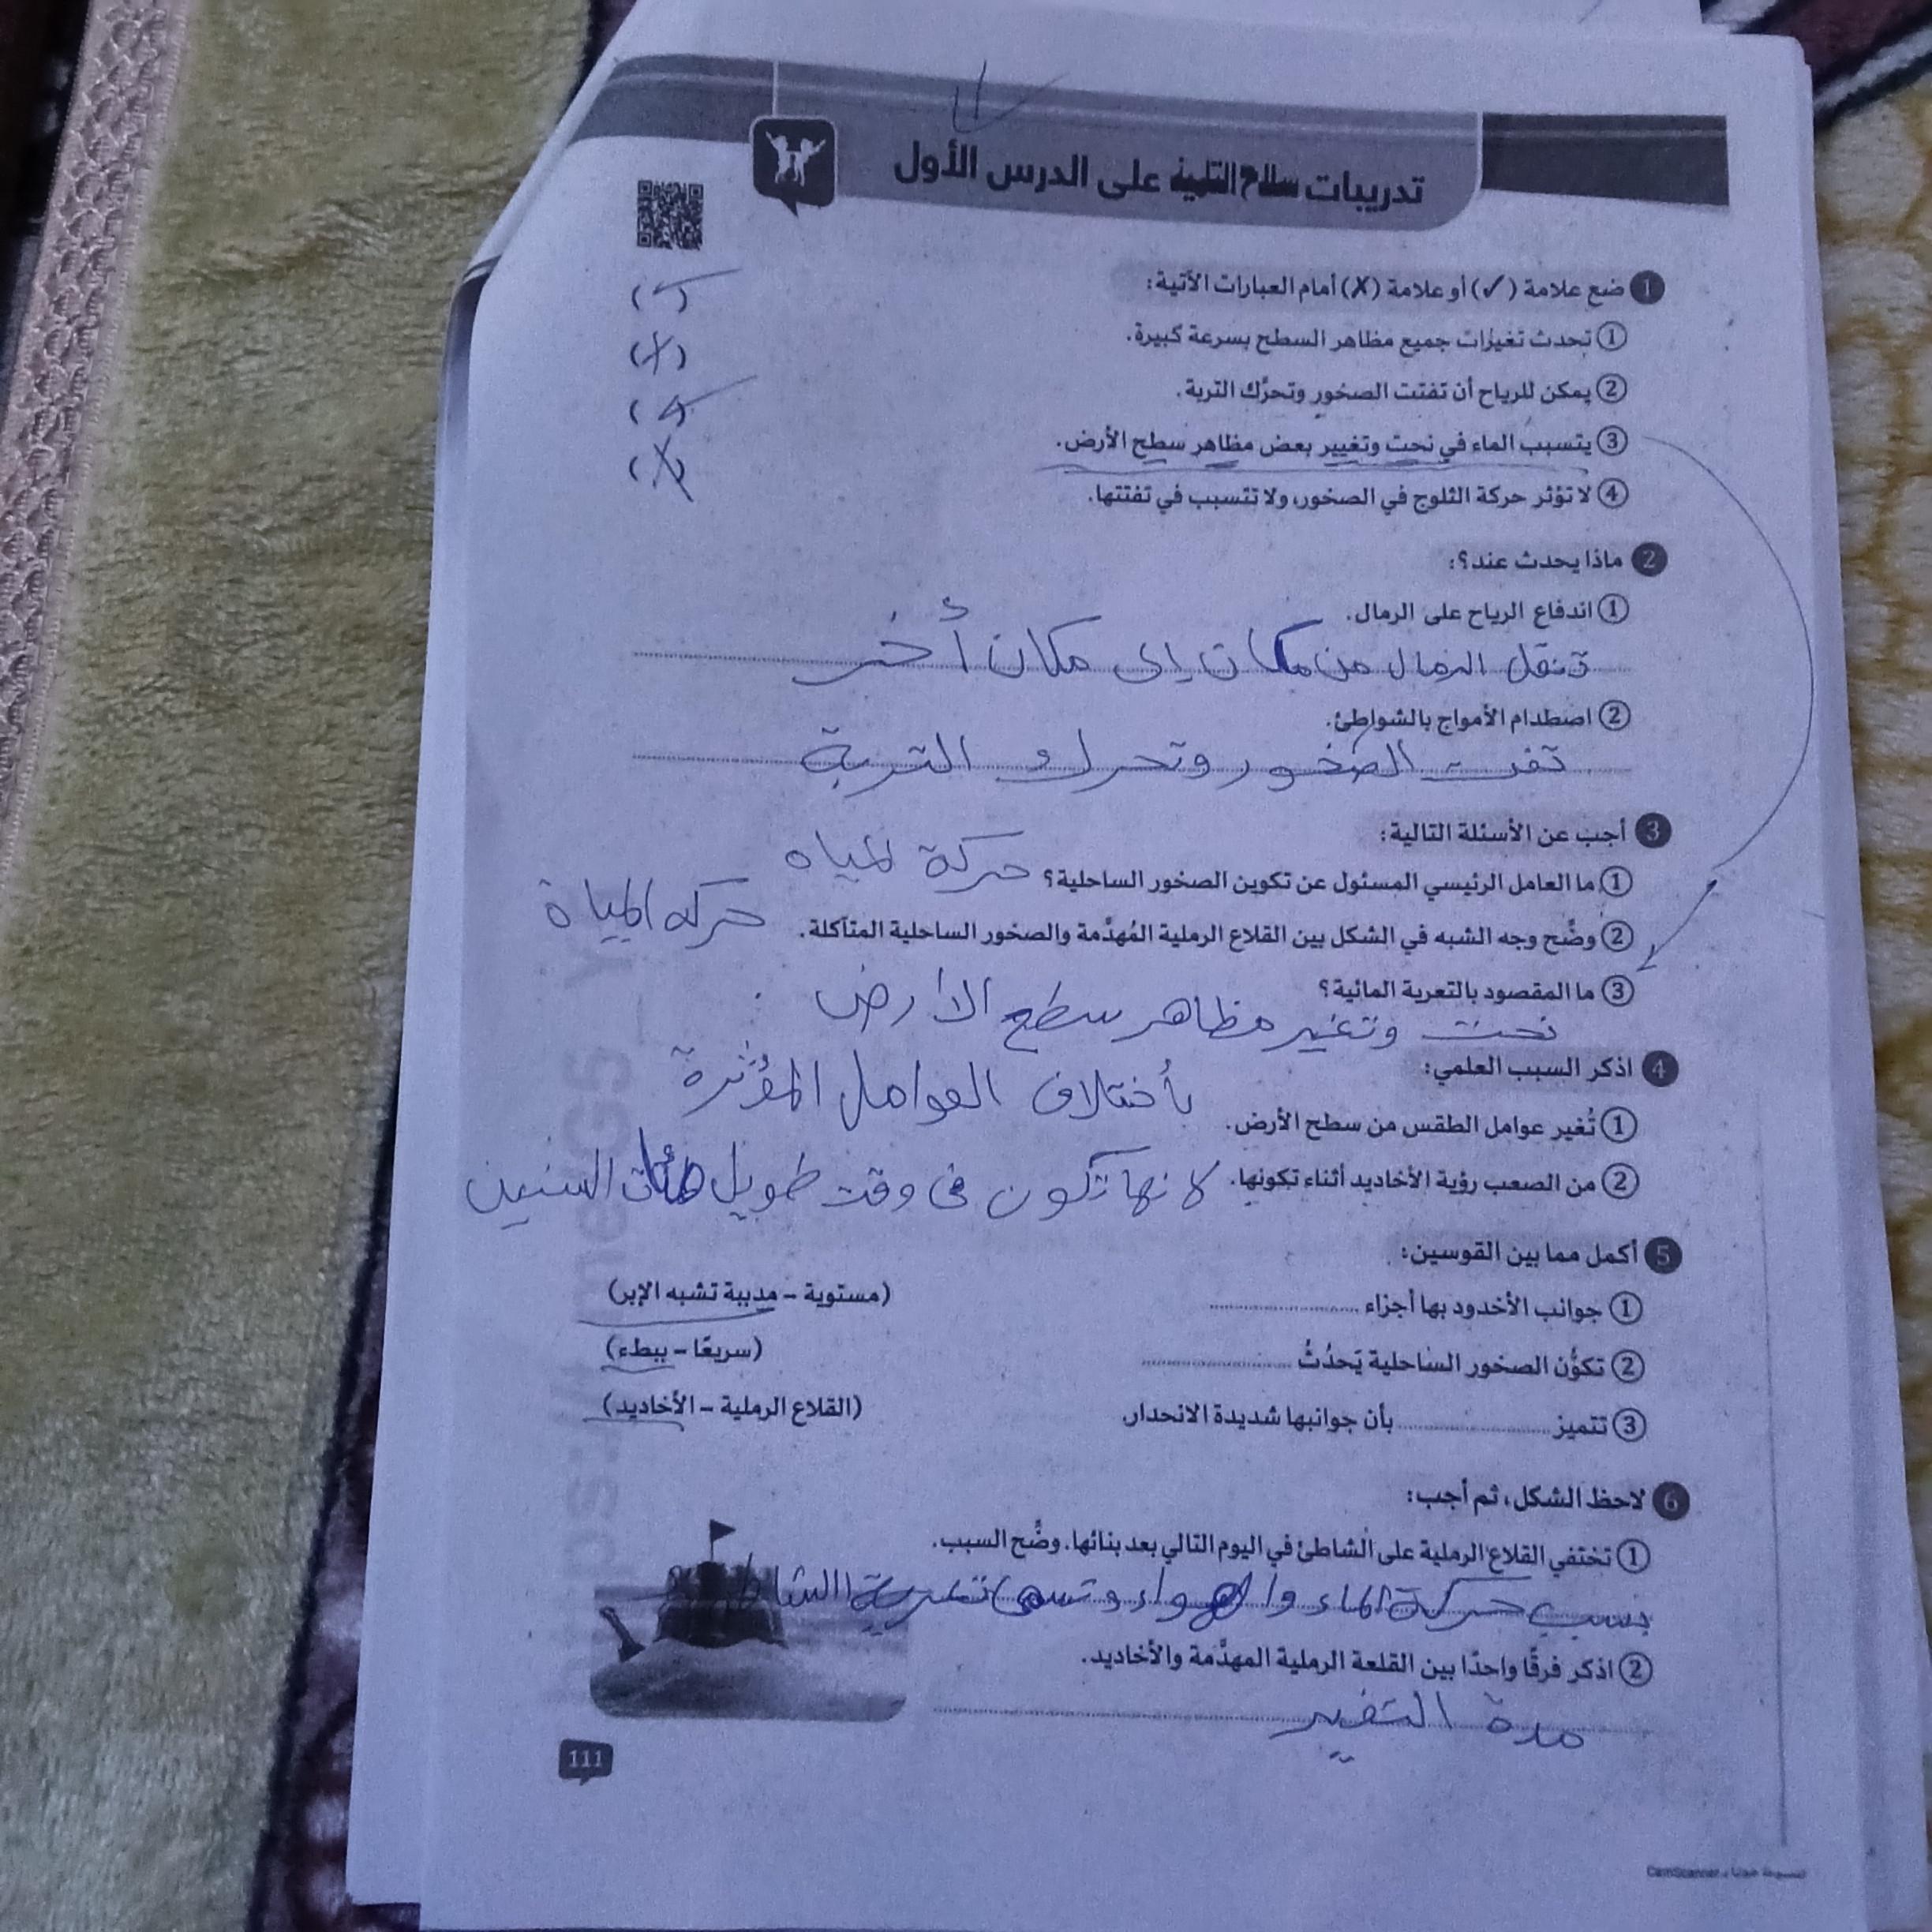 تدريبات سلاح التلميذ على الدرس الأول
1 ضع علامة (✓) أو علامة (✗) أمام العبارات الآتية:
(✓)
① تحدث تغيرات جميع مظاهر السطح بسرعة كبيرة.
(✗)
② يمكن للرياح أن تفتت الصخور وتحرك التربة.
(✓)
③ يتسبب الماء في نحت وتغيير بعض مظاهر سطح الأرض.
(✗)
④ لا تؤثر حركة الثلوج في الصخور، ولا تتسبب في تفتتها.
2 ماذا يحدث عند؟:
① اندفاع الرياح على الرمال.
تنقل الرمال من مكان إلى مكان أخر
② اصطدام الأمواج بالشواطئ.
تفتت الصخور وتحرك التربة
3 أجب عن الأسئلة التالية:
① ما العامل الرئيسي المسئول عن تكوين الصخور الساحلية؟ حركة المياه
② وضِّح وجه الشبه في الشكل بين القلاع الرملية المُهدَّمة والصخور الساحلية المتآكلة. حركه المياة
③ ما المقصود بالتعرية المائية؟
نحت وتغير مظاهر سطح الأرض .
4 اذكر السبب العلمي:
① تُغير عوامل الطقس من سطح الأرض. بأختلاف العوامل المؤثرة
② من الصعب رؤية الأخاديد أثناء تكونها. لانها تكون فى وقت طويل مئات السنين
5 أكمل مما بين القوسين:
① جوانب الأخدود بها أجزاء .................... (مستوية – مدببة تشبه الإبر)
② تكوُّن الصخور الساحلية يَحدُثُ .................... (سريعًا – ببطء)
③ تتميز .................... بأن جوانبها شديدة الانحدار. (القلاع الرملية – الأخاديد)
6 لاحظ الشكل، ثم أجب:
① تختفي القلاع الرملية على الشاطئ في اليوم التالي بعد بنائها. وضِّح السبب.
بسبب حركة الماء والهواء وتسمى تعرية الشاطئ
② اذكر فرقًا واحدًا بين القلعة الرملية المهدَّمة والأخاديد.
مدة التغير
111
CamScanner